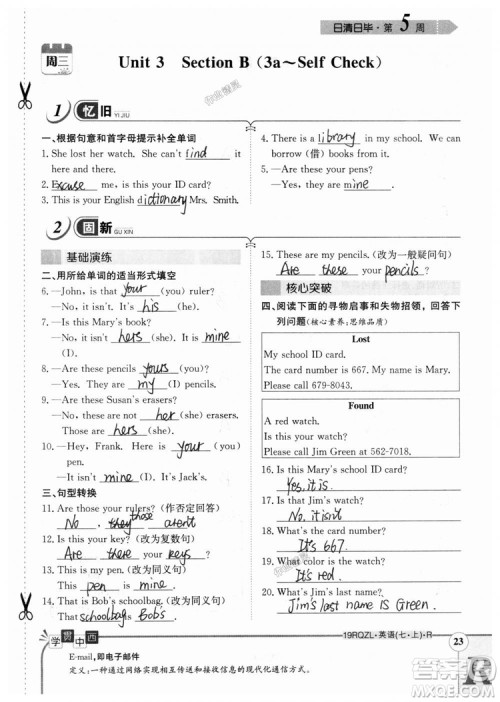 日清日毕·第5周
周三
Unit 3 Section B (3a～Self Check)
1 忆旧
YI JIU
一、根据句意和首字母提示补全单词
1. She lost her watch. She can't find it
here and there.
2. Excuse me, is this your ID card?
3. This is your English dictionary Mrs. Smith.
4. There is a library in my school. We can
borrow (借) books from it.
5. —Are these your pens?
—Yes, they are mine.
2 固新
GU XIN
基础演练
二、用所给单词的适当形式填空
6. —John, is that your (you) ruler?
—No, it isn't. It's his (he).
7. —Is this Mary's book?
—No, it isn't hers (she). It is mine
(I).
8. —Are these pencils yours (you)?
—Yes. They are my (I) pencils.
9. —Are these Susan's erasers?
—No, these are not her (she) erasers.
Those are hers (she).
10. —Hey, Frank. Here is your (you) pen.
—It isn't mine (I). It is Jack's.
三、句型转换
11. Are those your rulers? (作否定回答)
No, they those aren't
12. Is this your key? (改为复数句)
Are there your keys?
13. This is my pen. (改为同义句)
This pen is mine.
14. That is Bob's schoolbag. (改为同义句)
That schoolbag is Bob's.
15. These are my pencils. (改为一般疑问句)
Are these your pencils?
核心突破
四、阅读下面的寻物启事和失物招领，回答下
列问题(核心素养：思维品质)
Lost
My school ID card.
The card number is 667. My name is Mary.
Please call 679-8043.
Found
A red watch.
Is this your watch?
Please call Jim Green at 562-7018.
16. Is this Mary's school ID card?
Yes, it is.
17. Is that Jim's watch?
No, it isn't.
18. What's the card number?
It's 667.
19. What color is the watch?
It's red.
20. What's Jim's last name?
Jim's last name is Green.
学贯中西
E-mail, 即电子邮件
定义：一种通过网络实现相互传送和接收信息的现代化通信方式。
19RQZL·英语(七·上)·R
23
R